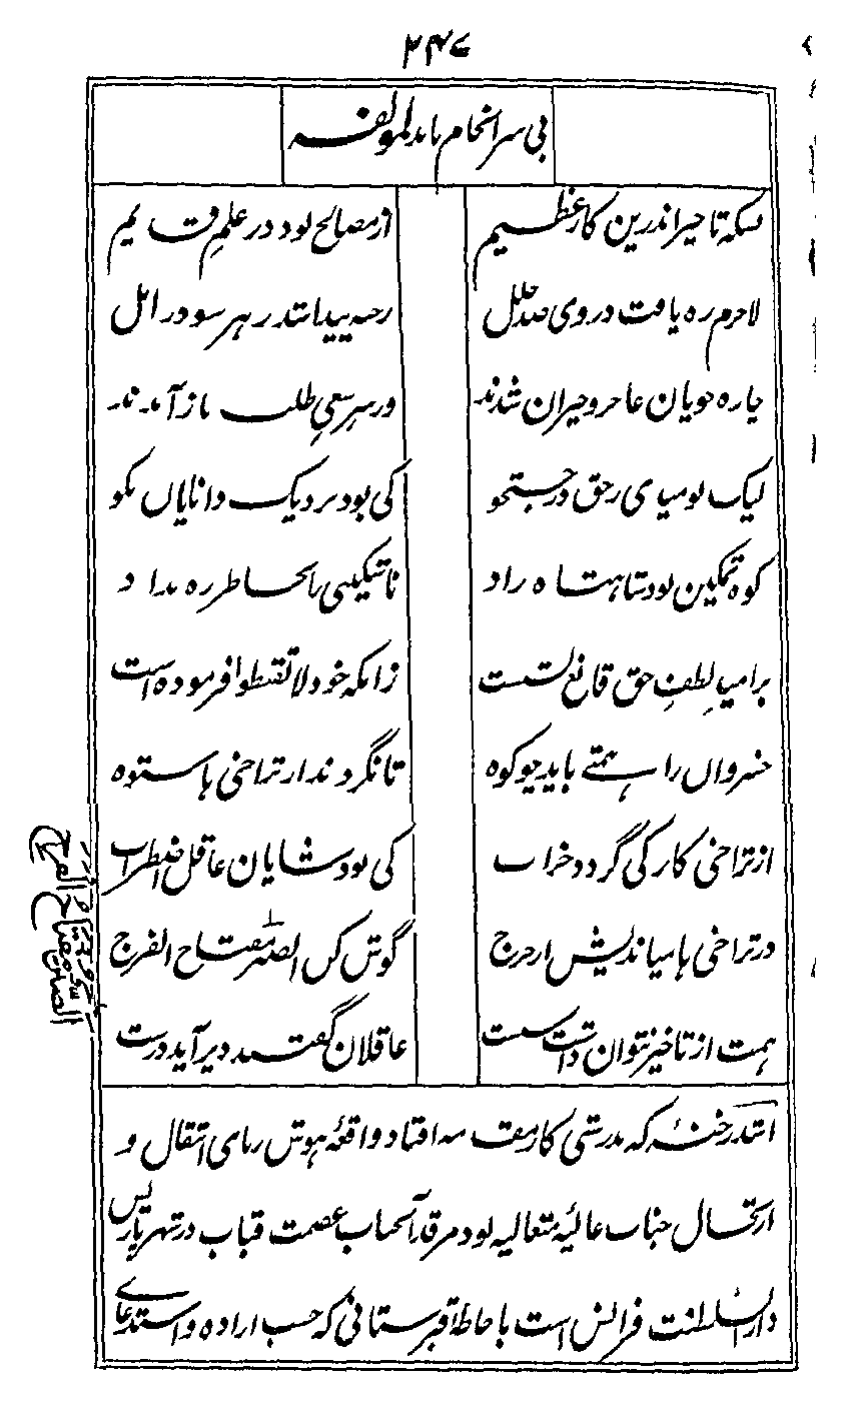 ۲۴۷
بی سرانجام ماند لمؤلفه
بسکه تاخیر اندرین کار عظیم از مصالح بود در علم قدیم
لاجرم ره یافت در وی صد خلل رخنه پیدا شد ز هر سو در امل
چاره جویان عاجز و حیران شدند وز سر سعی طلب باز آمدند
لیک نومیدی ز حق در جستجو کی بود نزدیک دانایان نکو
کوه تمکین بود شاهنشاه راد ناشکیبی را بخاطر ره نداد
بر امید لطف حق قانع نشست زانکه خود لا تقنطوا فرموده است
خسروان را همتی باید چو کوه تا نگردند از تراخی ها ستوه
از تراخی کار کی گردد خراب کی بود شایان عاقل اضطراب
در تراخی ها میاندیش از حرج گوش کن الصبر مفتاح الفرج
همت از تاخیر نتوان داشت سست عاقلان گفتند دیر آید درست
الصبر مفتاح الفرج
اشد رخنه که در پیش کار سفارت افتاد واقعه هوش ربای انتقال و
ارتحال جناب عالیه متعالیه بود مرقد آنجناب عصمت قباب در شهر پاریس
دار السلطنت فرانس است باحاطه قبرستانی که حسب اراده و استدعای